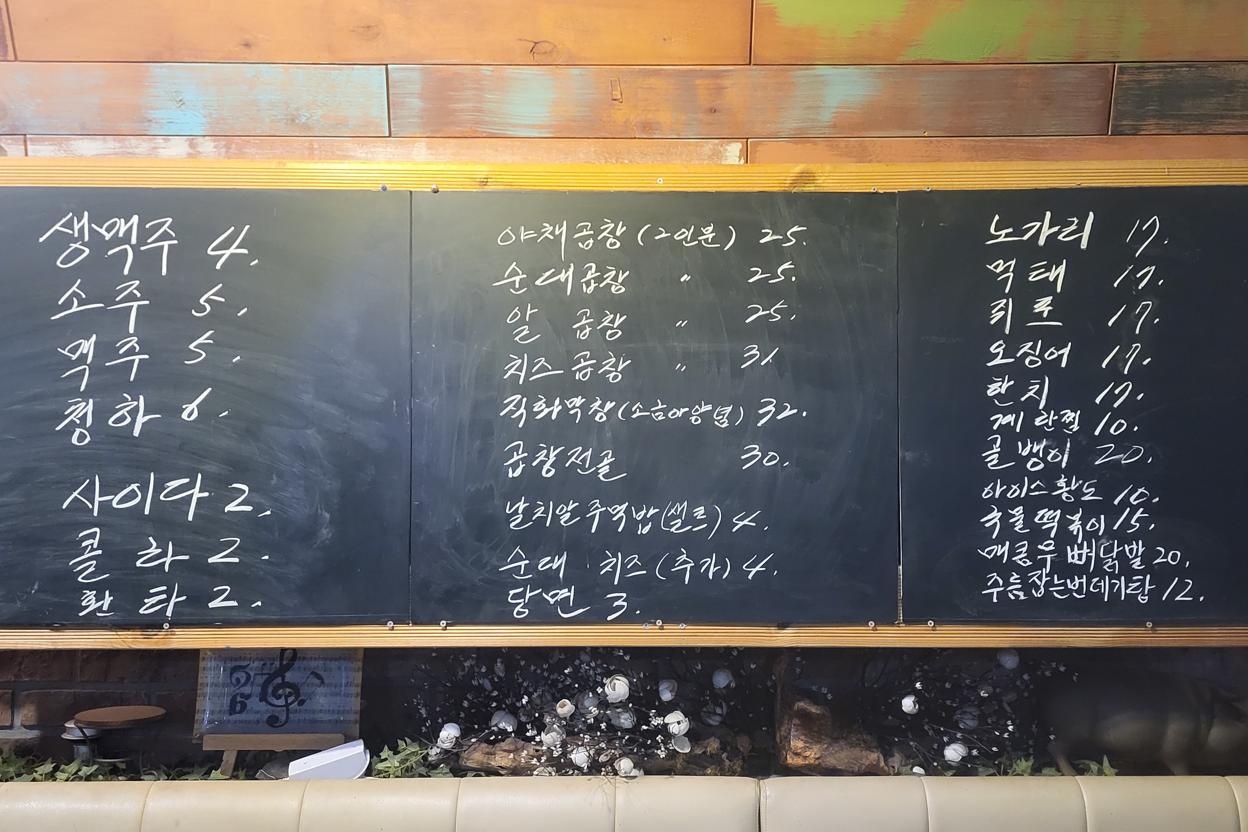 생맥주 4.
소주 5.
맥주 5.
청하 6.
사이다 2.
콜라 2.
환타 2.
야채곱창 (2인분) 25.
순대곱창 〃 25.
알 곱창 〃 25.
치즈곱창 〃 31.
직화막창 (소금아양념) 32.
곱창전골 30.
날치알 주먹밥 (셀프) 4.
순대 치즈 (추가) 4.
당면 3.
노가리 17.
먹태 17.
쥐포 17.
오징어 17.
한치 17.
계란찜 10.
골뱅이 20.
아이스황도 10.
국물떡볶이 15.
매콤무뼈닭발 20.
주름잡는번데기탕 12.